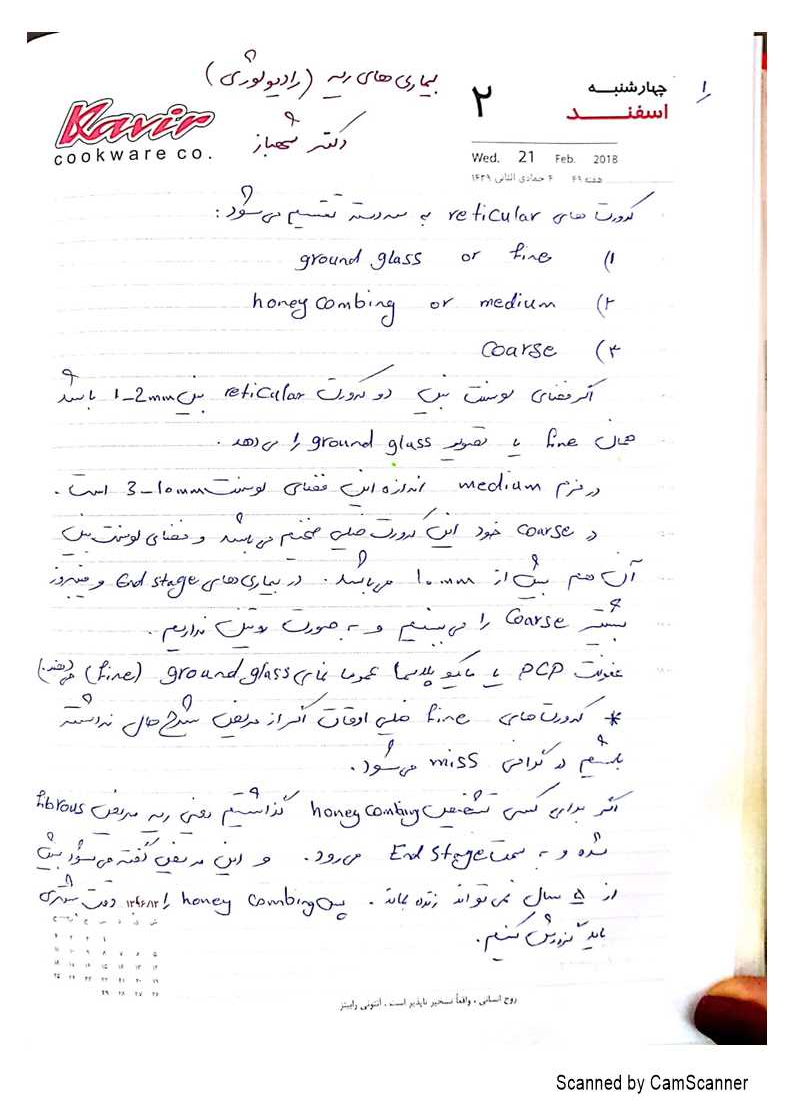 ۱
بیماری های ریه (رادیولوژی)
دکتر شهباز
Kavir
cookware co.
۲
چهارشنبه
اسفند
Wed. 21 Feb. 2018
هفته ۴۹ ۴ جمادی الثانی ۱۴۳۹
کدورت های reticular به سه دسته تقسیم می شود:
۱) ground glass or fine
۲) honey combing or medium
۳) coarse
اگر فضای لوسنت بین دو کدورت reticular بین 1-2mm باشد
همان fine یا تصویر ground glass را می دهد.
در فرم medium اندازه این فضای لوسنت 3-10mm است.
در coarse خود این کدورت خیلی ضخیم می باشد و فضای لوسنت بین
آن هم بیش از 10mm می باشد. در بیماری های End stage و فیبروز
بیشتر coarse را می بینیم و به صورت روتین نداریم.
عفونت PCP یا مایکوپلاسما عموما نمای ground glass (fine) (می دهند)
* کدورت های fine خیلی اوقات اگر از مریض شرح حال نداشته
باشیم در گرافی miss می شود.
اگر برای کسی تشخیص honey combing گذاشتیم یعنی ریه مریض fibrous
شده و به سمت End stage می رود. و این مریض گفته می شود بیش
از ۵ سال نمی تواند زنده بماند. پس honey combing را با دقت بیشتری
باید گزارش کنیم.
روح انسانی، واقعاً تسخیر ناپذیر است. آنتونی رابینز
Scanned by CamScanner